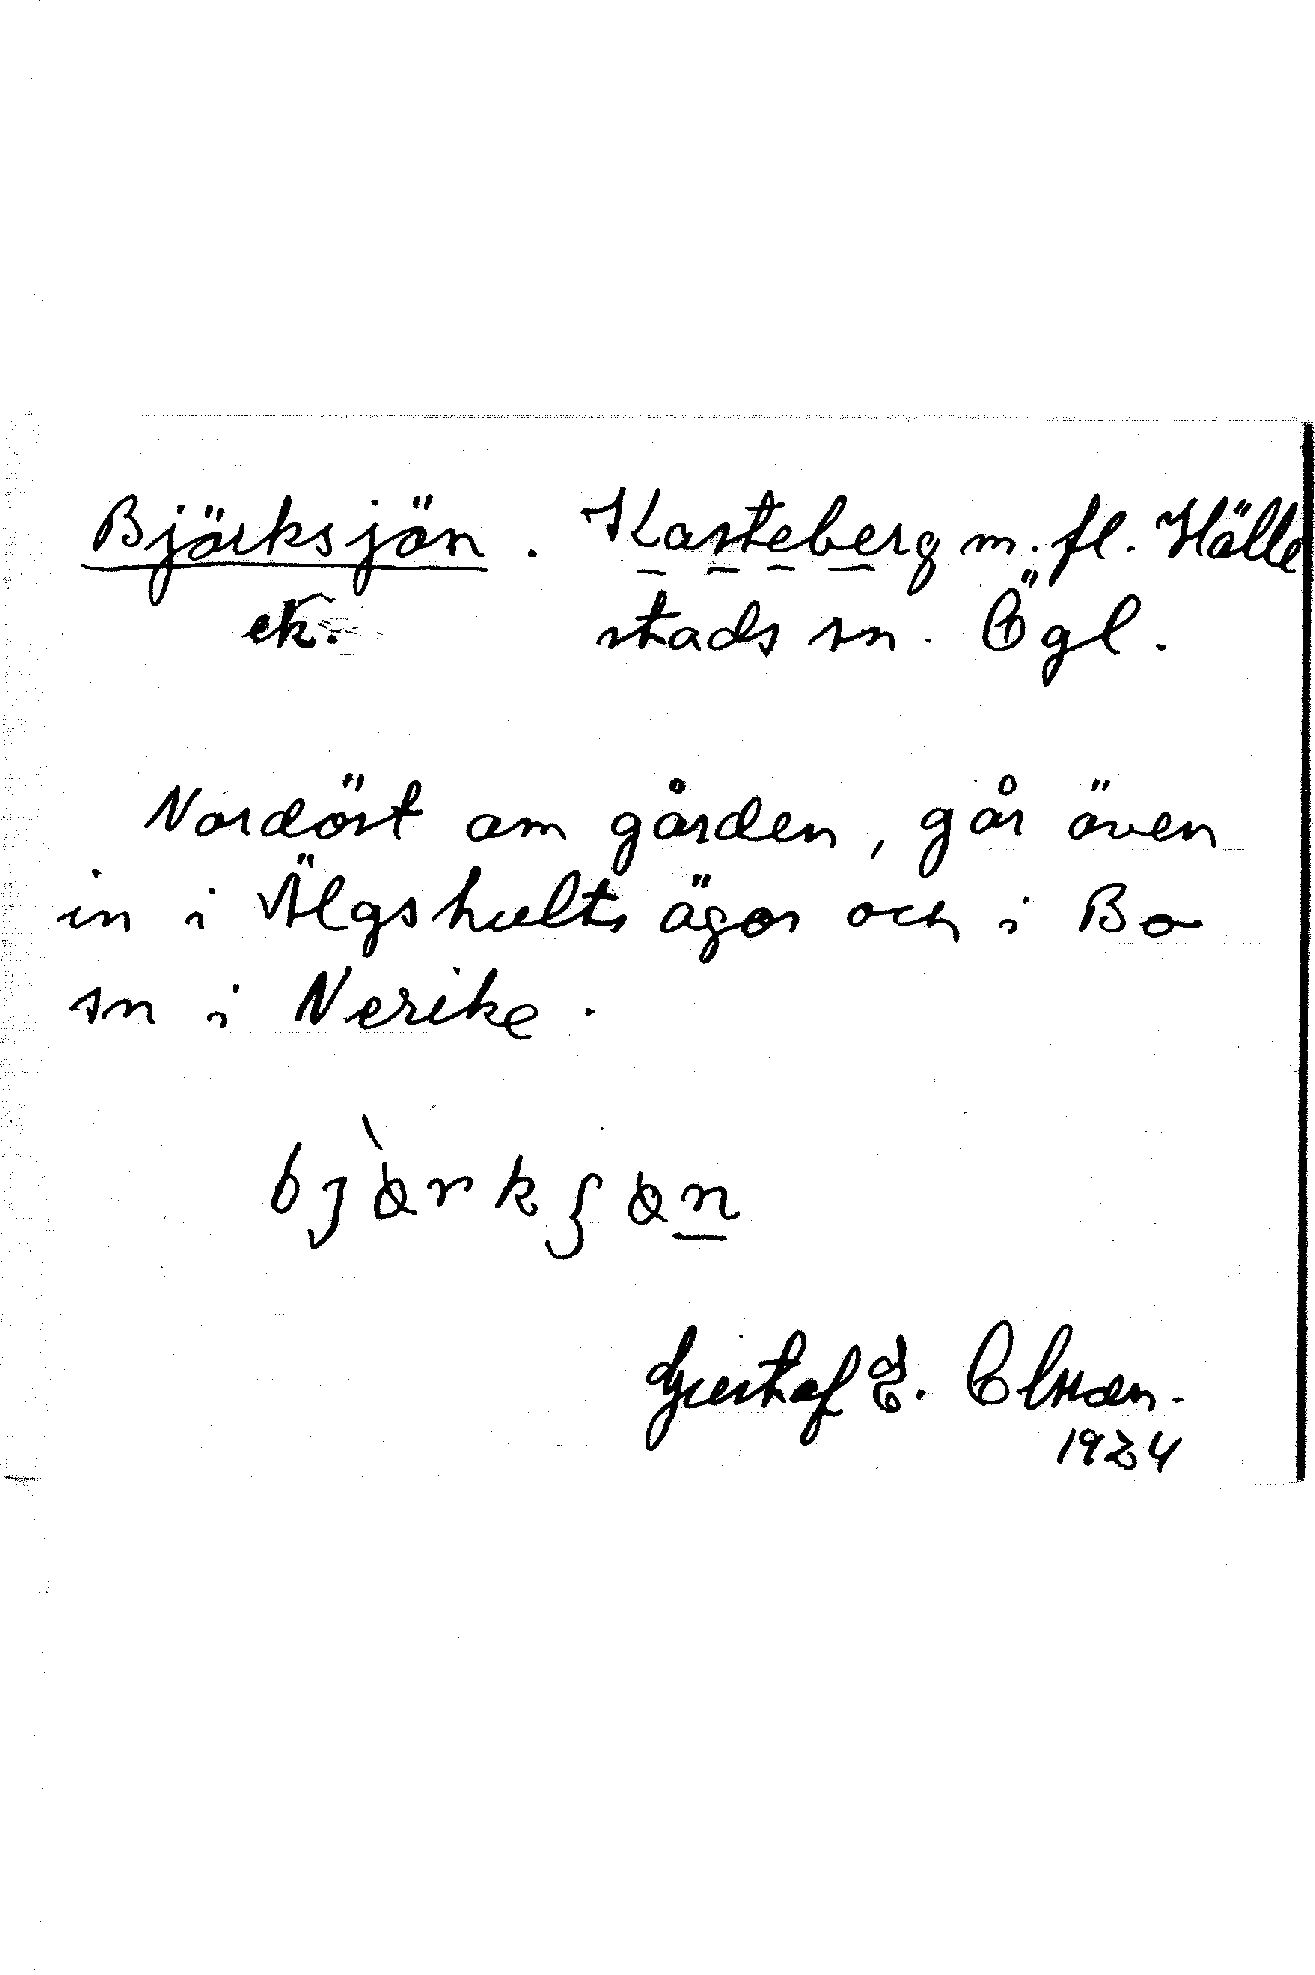 Björksjön. Kasteberg m. fl. Hälle
ek. stads sn. Ögl.
Nordöst om gården, går även
in i Älgshults ägor och i Bo
sn i Nerike.
Gustaf E. Olsson.
1924